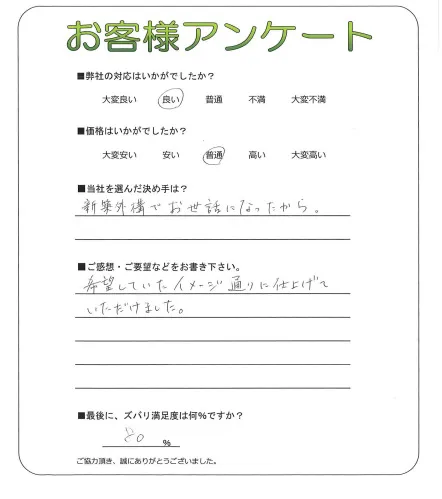 お客様アンケート
■弊社の対応はいかがでしたか？
大変良い 良い 普通 不満 大変不満
■価格はいかがでしたか？
大変安い 安い 普通 高い 大変高い
■当社を選んだ決め手は？
新築外構でお世話になったから。
■ご感想・ご要望などをお書き下さい。
希望していたイメージ通りに仕上げて
いただけました。
■最後に、ズバリ満足度は何％ですか？
80 ％
ご協力頂き、誠にありがとうございました。